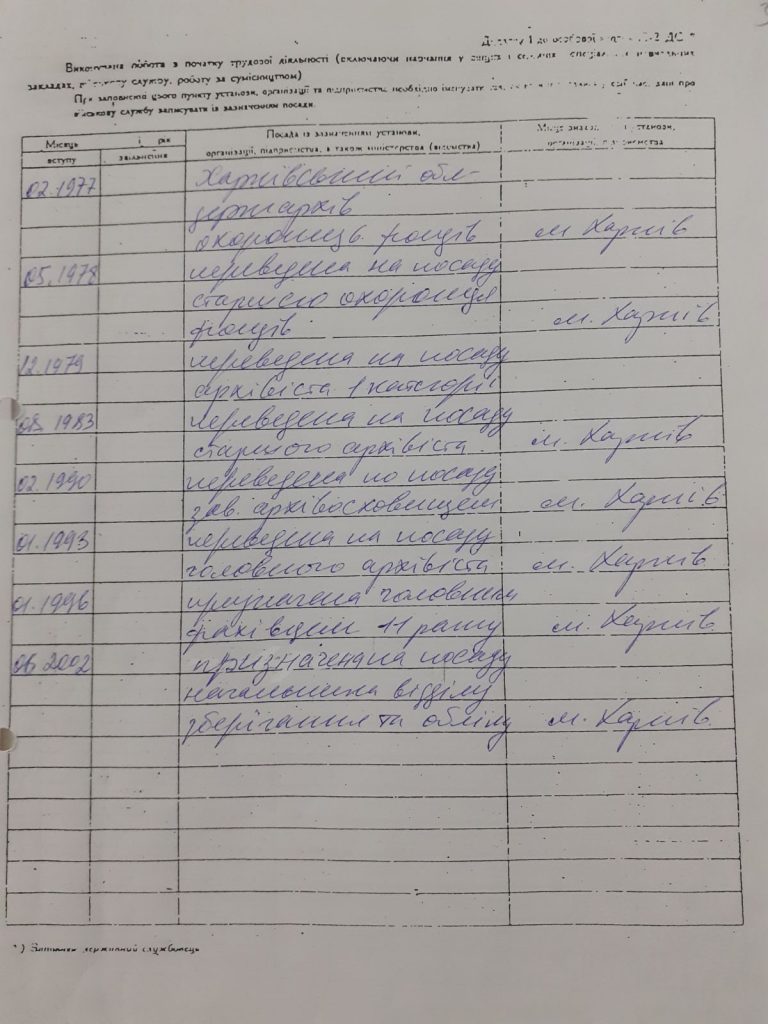 Додаток 1 до особової П-2 ДС
Виконувана робота з початку трудової діяльності (включаючи навчання у вищих і середніх спеціальних навчальних
закладах, військову службу, роботу за сумісництвом)
При заповненні цього пункту установи, організації та підприємства необхідно іменувати так, як свій час, дані про
військову службу записувати із зазначенням посади.
Місяць і рік
вступу звільнення
Посада із зазначенням установи,
організації, підприємства, а також міністерства (відомства)
установи,
організації, підприємства
02.1977 Харківський обл-
держархів
охоронець фондів м. Харків
05.1978 переведена на посаду
старшого охоронця
фондів м. Харків
12.1979 переведена на посаду
архівіста 1 категорії
08.1983 переведена на посаду
старшого архівіста м. Харків
02.1990 переведена на посаду
зав. архівосховищем м. Харків
01.1993 переведена на посаду
головного архівіста м. Харків
01.1996 призначена головним
фахівцем 11 рангу м. Харків
06.2002 призначена на посаду
начальника відділу
зберігання та обліку м. Харків
*) Заповнює державний службовець